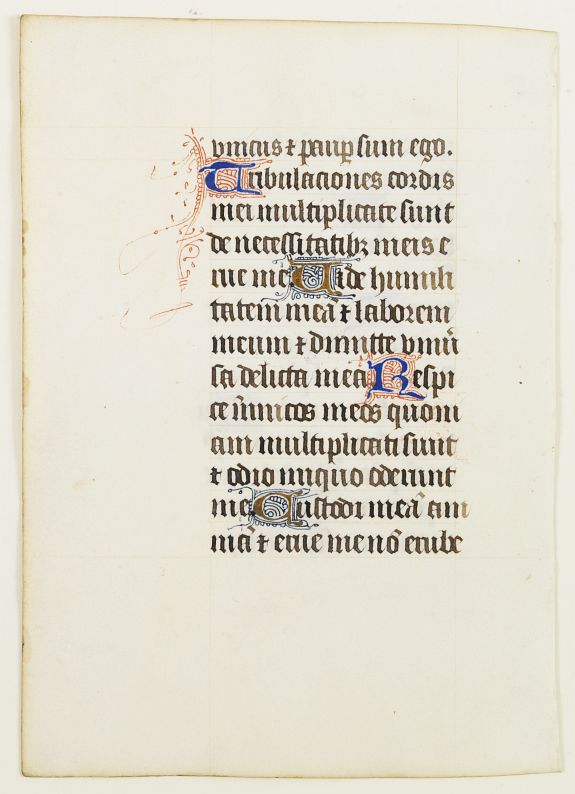 vnicus ⁊ paup̱ sum ego.
Tribulaciones cordis
mei multiplicate sunt
de necessitatibꝫ meis e
rue me Vide humili
tatem meā ⁊ laborem
meum ⁊ dimitte vniū
sa delicta mea Respi
ce īimicos meos quoni
am multiplicati sunt
⁊ odio iniquo oderunt
me Custodi meā am
mā ⁊ erue me nō erube